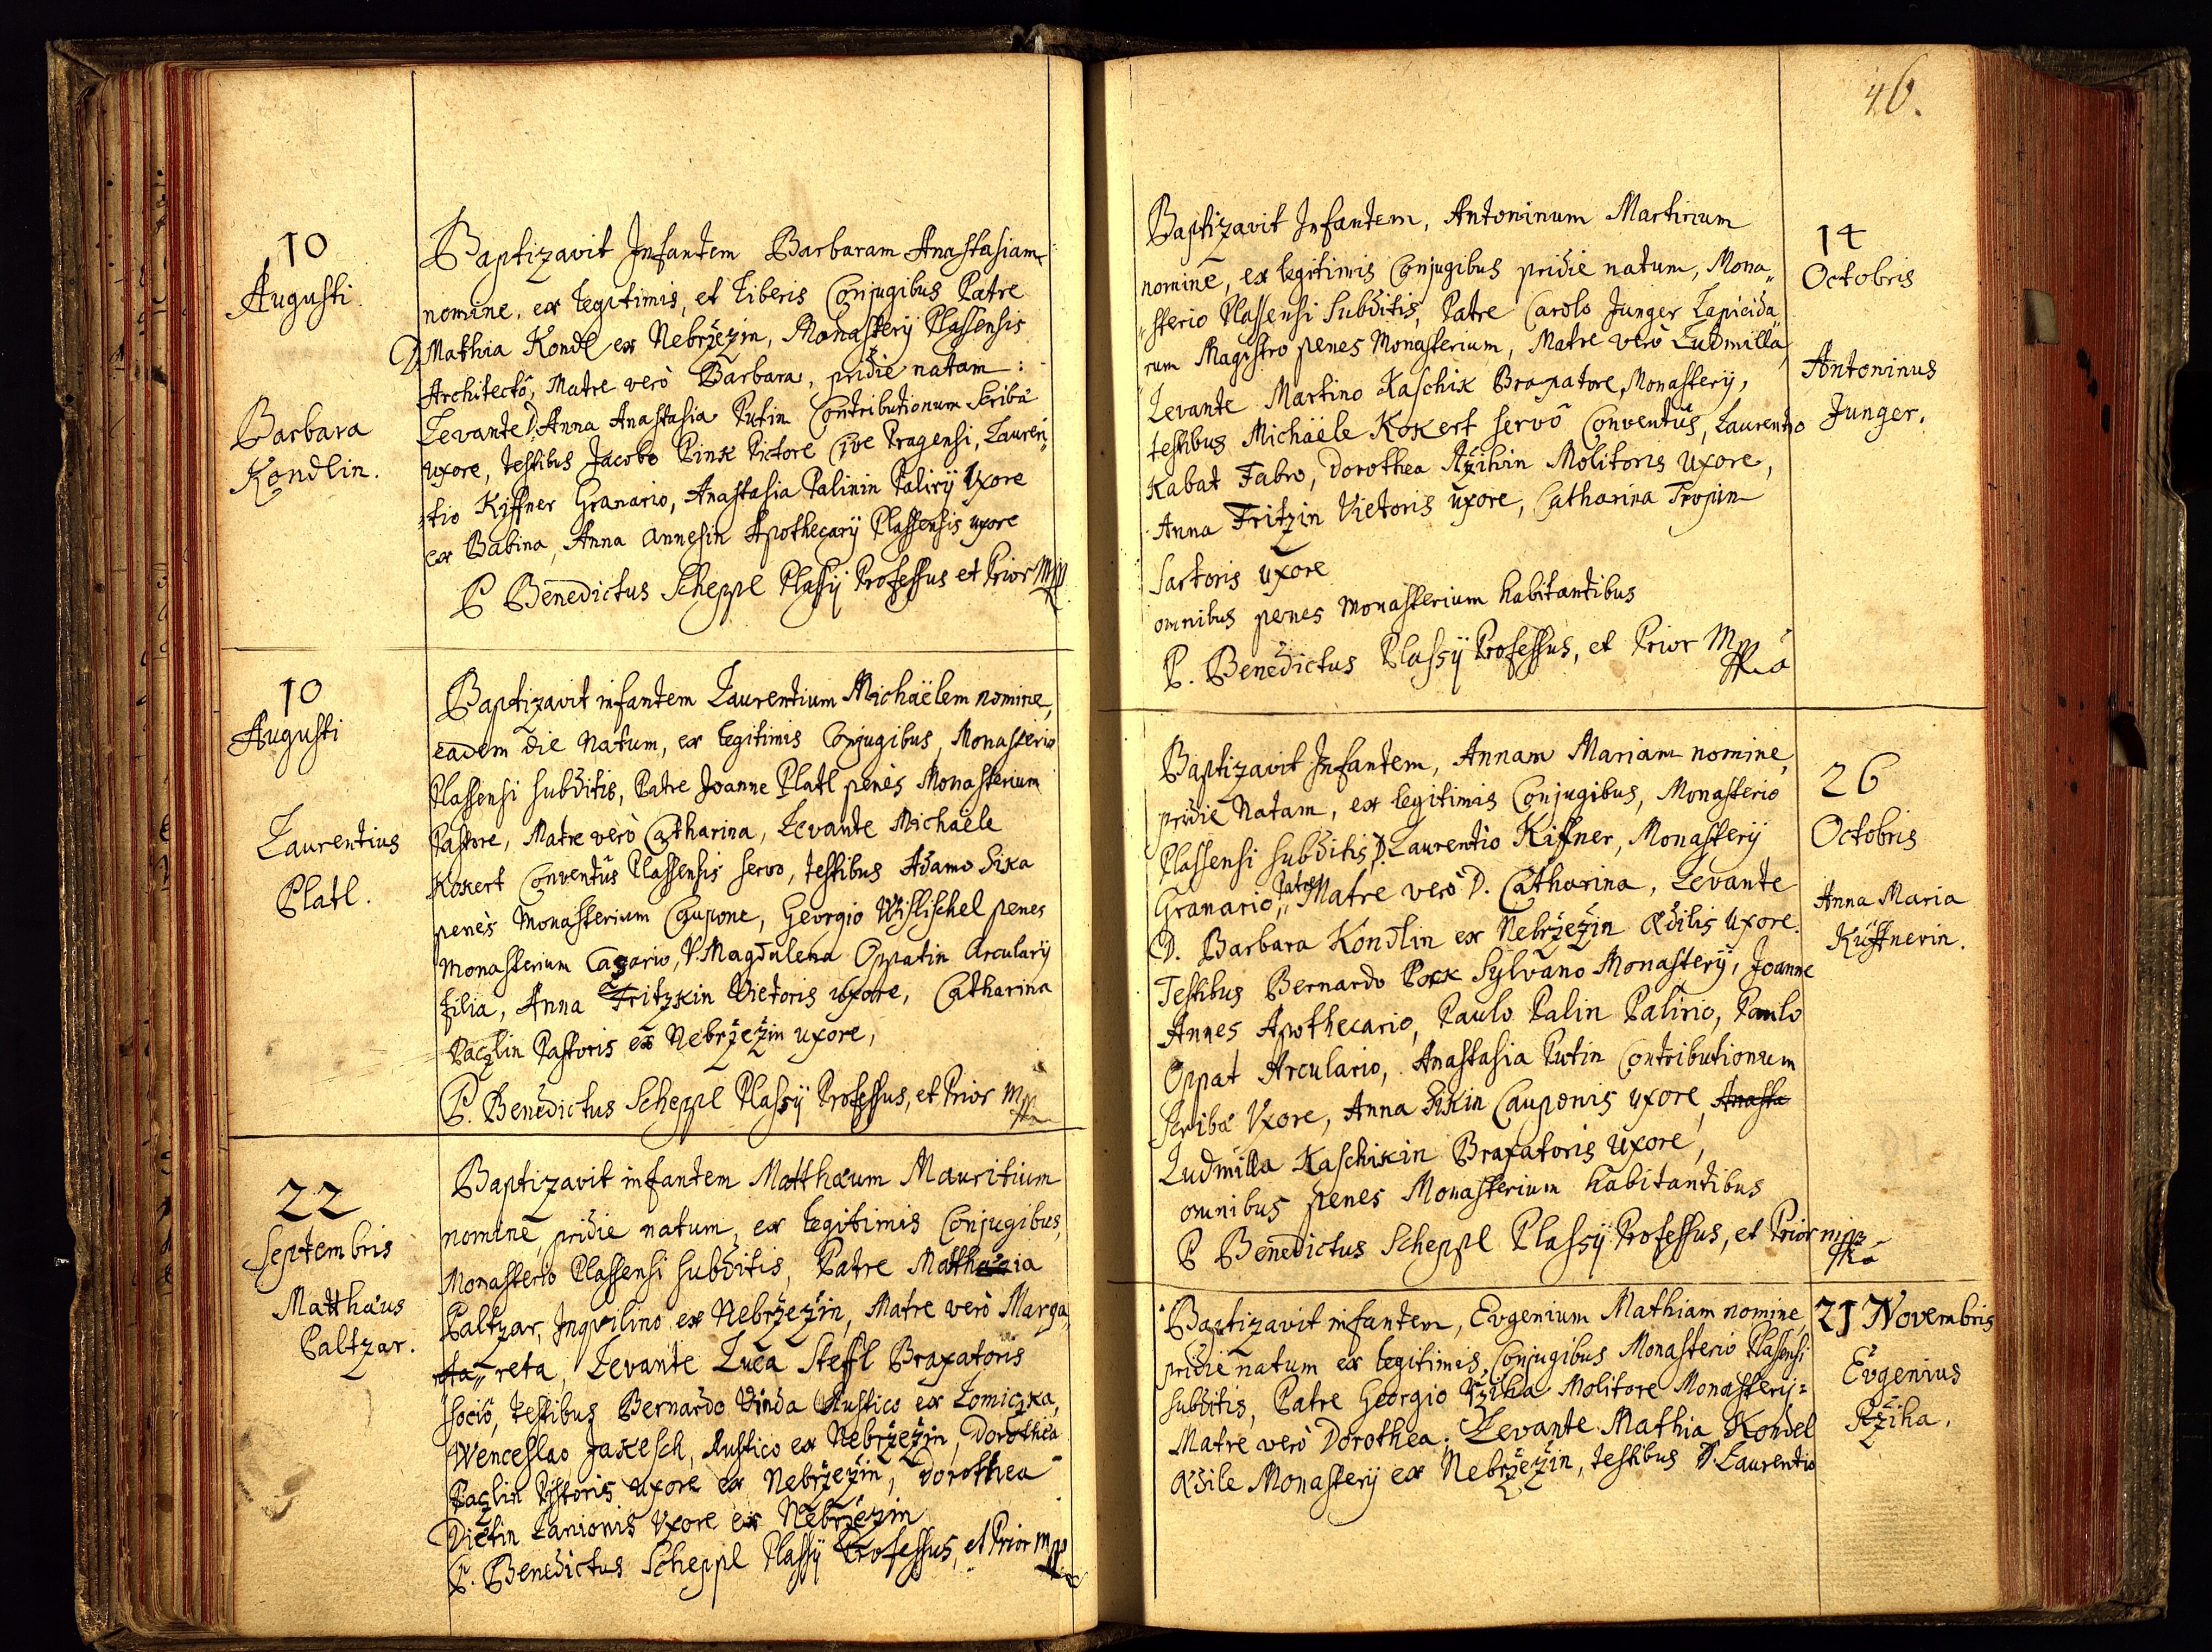 10
Augusti.
Barbara
Kondlin.
Baptizavit Infantem Barbaram Anastasiam
nomine, ex legitimis, et liberis Conjugibus Patre
D. Mathia Kondl ex Nebrzezin, Monasterÿ Plassensis
Architectô, Matre verò Barbara, pridie natam:
Levante D. Anna Anastasia Putin Contributionum Scribæ
uxore, testibus Jacobo Pink Pictore Cive Pragensi, Lauren„
„tio Kiffner Granario, Anastasia Palinin Palirÿ Uxore
ex Babina, Anna Annesin Apothecarÿ Plassensis uxore
P Benedictus Scheppl Plassÿ Professus et Prior Mpp
10
Augusti
Laurentius
Platl.
Baptizavit infantem Laurentium Michaëlem nomine,
eadem die natum, ex legitimis Conjugibus, Monasterio
Plassensi subditis, Patre Joanne Platl penès Monasterium
Pastore, Matre verò Catharina, Levante Michaële
Kokert Conventûs Plassensis servo, testibus Adamo Sika
penès Monasterium Caupone, Georgio Wislischel penes
Monasterium Casario, V. Magdalena Oppatin Arcularÿ
filia, Anna Fritzkin Vietoris uxore, Catharina
Paczlin Pastoris ex Nebrzezin uxore,
P. Benedictus Scheppl Plassÿ Professus, et Prior Mpp
22
Septembris
Matthæus
Paltzar.
Baptizavit infantem Matthæum Mauritium
nomine, pridie natum, ex legitimis Conjugibus,
Monasterio Plassensi subditis, Patre Mathia
Paltzar, Inquilino ex Nebrzezin, Matre verò Marga„
„reta, Levante Luca Steffl Braxatoris
socio, testibus Bernardo Vinda Rustico ex Lomiczka,
Wenceslao Jakesch, Rustico ex Nebrzezin, Dorothea
Paczlin Pistoris uxore ex Nebrzezin, Dorothea
Dietin Lanionis Uxore ex Nebrzezin
P. Benedictus Scheppl Plassÿ Professus, et Prior Mpp
46.
Baptizavit Infantem, Antoninum Martinum
nomine, ex legitimis Conjugibus pridie natum, Mona„
„sterio Plassensi Subditis, Patre Carolo Junger Lapicida„
rum Magistro penes Monasterium, Matre verò Ludmilla,
Levante Martino Kaschik Braxatore Monasterÿ,
testibus Michaële Kokert servô Conventûs, Laurentio
Kabat Fabro, Dorothea Rzihin Molitoris Uxore,
Anna Fritzin Vietoris uxore, Catharina Tropin
Sartoris uxore
omnibus penes Monasterium habitantibus
P. Benedictus Plassÿ Professus, et Prior Mpp
14
Octobris
Antoninus
Junger.
Baptizavit Infantem, Annam Mariam nomine,
pridie Natam, ex legitimis Conjugibus, Monasterio
Plassensi subditis, D. Laurentio Kiffner, Monasterÿ
Granario, Patre, Matre verò D. Catharina, Levante
D. Barbara Kondlin ex Nebrzezin Ædilis Uxore.
Testibus Bernardo Pock Sylvano Monasterÿ, Joanne
Annes Apothecario, Paulo Palin Palirio, Paulo
Oppat Arculario, Anastasia Putin Contributionum
Scribæ Uxore, Anna Sikin Cauponis uxore, Anasta
Ludmilla Kaschikin Braxatoris Uxore,
omnibus penes Monasterium habitantibus
P Benedictus Scheppl Plassÿ Professus, et Prior mpp
26
Octobris
Anna Maria
Küffnerin.
Baptizavit infantem, Eugenium Mathiam nomine,
pridie natum ex legitimis Conjugibus Monasterio Plassensi
subditis, Patre Georgio Rziha Molitore Monasterÿ:
Matre verò Dorothea: Levante Mathia Kondel
Ædile Monasterÿ ex Nebrzezin, testibus D. Laurentio
21 Novembris
Eugenius
Rziha.